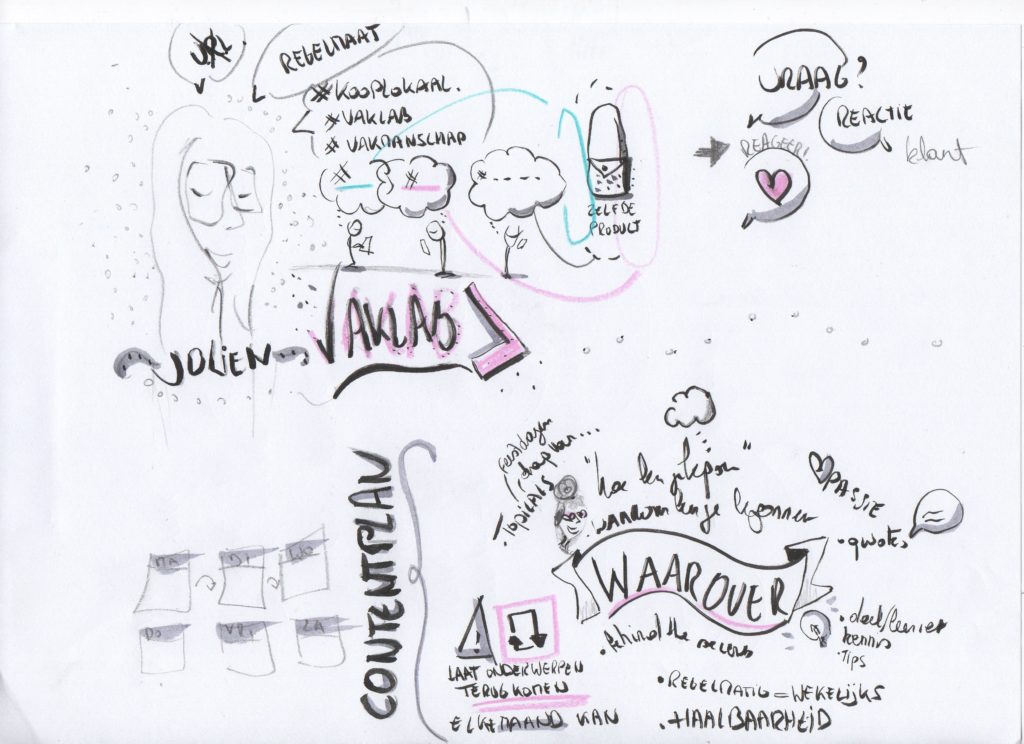 VRIJ
REGELMAAT
#KOOPLOKAAL.
#VAKLAB
#VAKMANSCHAP
#
#
#
ZELFDE
PRODUCT
VRAAG?
REACTIE
REAGEER!
klant
JOLIEN
VAKLAB
CONTENTPLAN
MA
DI
WO
DO
VRIJ
ZA
feestdagen
dag van...
• TOPICALS
"hoe ben je
waarom ben je begonnen
PASSIE
• quotes
WAAROVER
• behind the scenes
• deel
kennis
• TIPS
LAAT ONDERWERPEN
TERUGKOMEN
ELKE MAAND KAN
• REGELMATIG = WEKELIJKS
• HAALBAARHEID